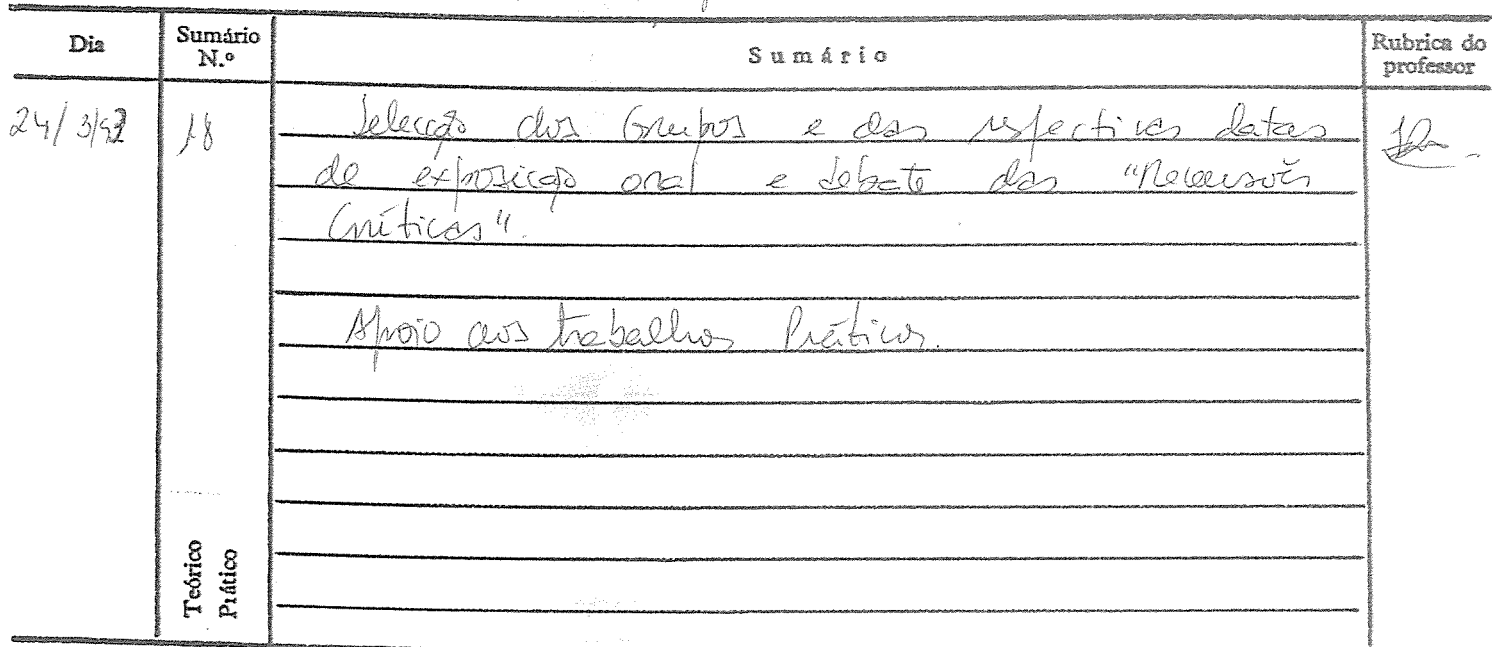 Dia Sumário N.º Sumário Rubrica do professor
24/3/92 18 Selecção dos Grupos e das respectivas datas
de exposição oral e debate das "Recensões
Críticas".
Apoio aos trabalhos Práticos.
Teórico
Prático